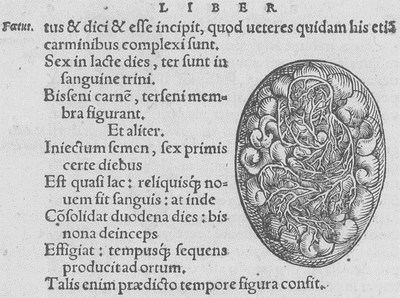 LIBER
Fœtus. tus & dici & esse incipit, quod ueteres quidam his etiã
carminibus complexi sunt.
Sex in lacte dies, ter sunt in
sanguine trini.
Bisseni carnẽ, terseni mem=
bra figurant.
Et aliter.
Iniectum semen, sex primis
certe diebus
Est quasi lac: reliquisq́; no=
uem fit sanguis: at inde
Cõsolidat duodena dies: bis
nona deinceps
Effigiat: tempusq́; sequens
producit ad ortum.
Talis enim prædicto tempore figura confit.